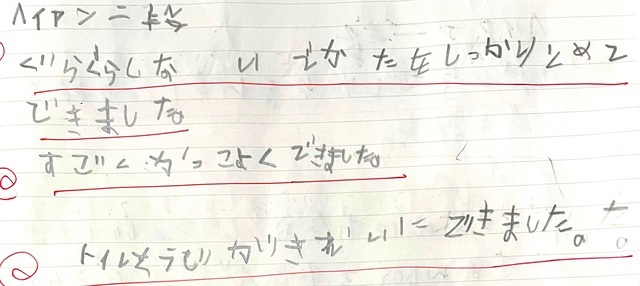 ヘイアン二だん
ぐらぐらしない でかたをしっかりとめて
できました。
すごくかっこよくできました。
トイレそうじがきれいにできました。